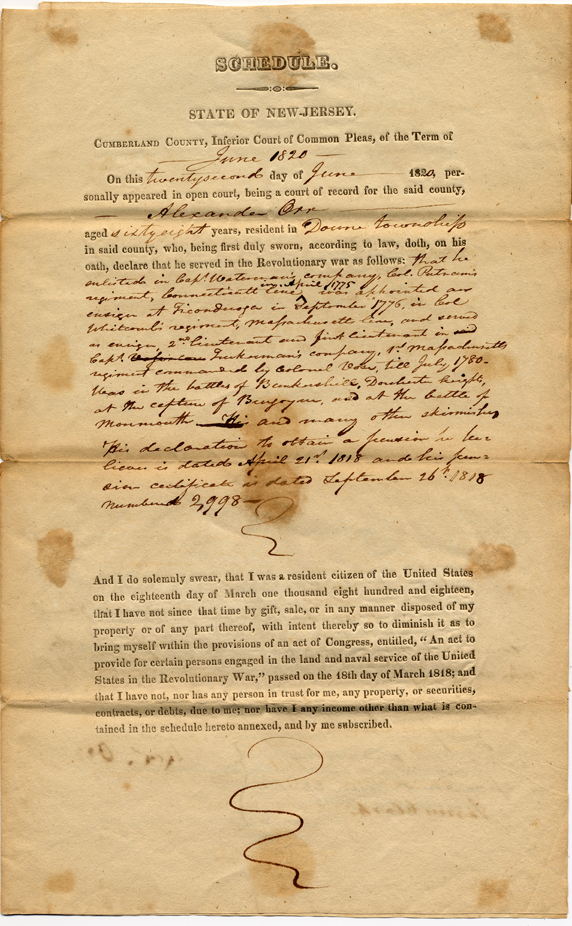 SCHEDULE.
STATE OF NEW-JERSEY.
CUMBERLAND COUNTY, Inferior Court of Common Pleas, of the Term of
June 1820
On this twentysecond day of June 1820, per-
sonally appeared in open court, being a court of record for the said county,
Alexander Orr
aged sixtyeight years, resident in Downe township
in said county, who, being first duly sworn, according to law, doth, on his
oath, declare that he served in the Revolutionary war as follows: that he
enlisted in Capt. Waterman's company, Col. Putnam's
regiment, Connecticutt line, in April 1775 was appointed an
ensign at Ticonderoga in September 1776, in Col
Whitcomb's regiment, Massachusetts line, and served
as ensign, 2nd lieutenant and first lieutenant in
Capt. Tuckerman's company, 1st Massachusetts
regiment commanded by Colonel Vose, till July 1780-
Was in the battles of Bunkershill, Dorchester height,
at the capture of Burgoyne, and at the battle of
Monmouth and many other skirmishes
His declaration to obtain a pension he be-
lieves is dated April 21st 1818 and his pen-
sion certificate is dated September 26th 1818
numbered 2,998-
And I do solemnly swear, that I was a resident citizen of the United States
on the eighteenth day of March one thousand eight hundred and eighteen,
that I have not since that time by gift, sale, or in any manner disposed of my
property or of any part thereof, with intent thereby so to diminish it as to
bring myself within the provisions of an act of Congress, entitled, “An act to
provide for certain persons engaged in the land and naval service of the United
States in the Revolutionary War,” passed on the 18th day of March 1818; and
that I have not, nor has any person in trust for me, any property, or securities,
contracts, or debts, due to me; nor have I any income other than what is con-
tained in the schedule hereto annexed, and by me subscribed.